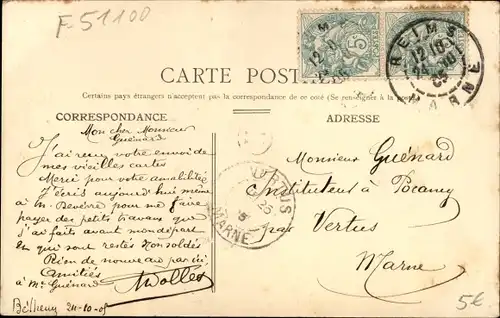 F 51100
CARTE POSTALE
Certains pays étrangers n'acceptent pas la correspondance de ce coté (Se renseigner à la poste)
CORRESPONDANCE
ADRESSE
Mon cher Monsieur
Guénard
J'ai reçu votre envoi de
mes vieilles cartes
Merci pour votre amabilité
J'écris aujourd'hui même
à M. pour me faire
payer des petits travaux que
j'ai faits avant mon départ
et qui sont restés non soldés
Rien de nouveau par ici
Amitiés
à Me Guénard
Bétheny 24-10-05
Monsieur Guénard
Instituteur à Pocancy
par Vertus
Marne
REIMS
MARNE
VERTUS
MARNE
5
5€